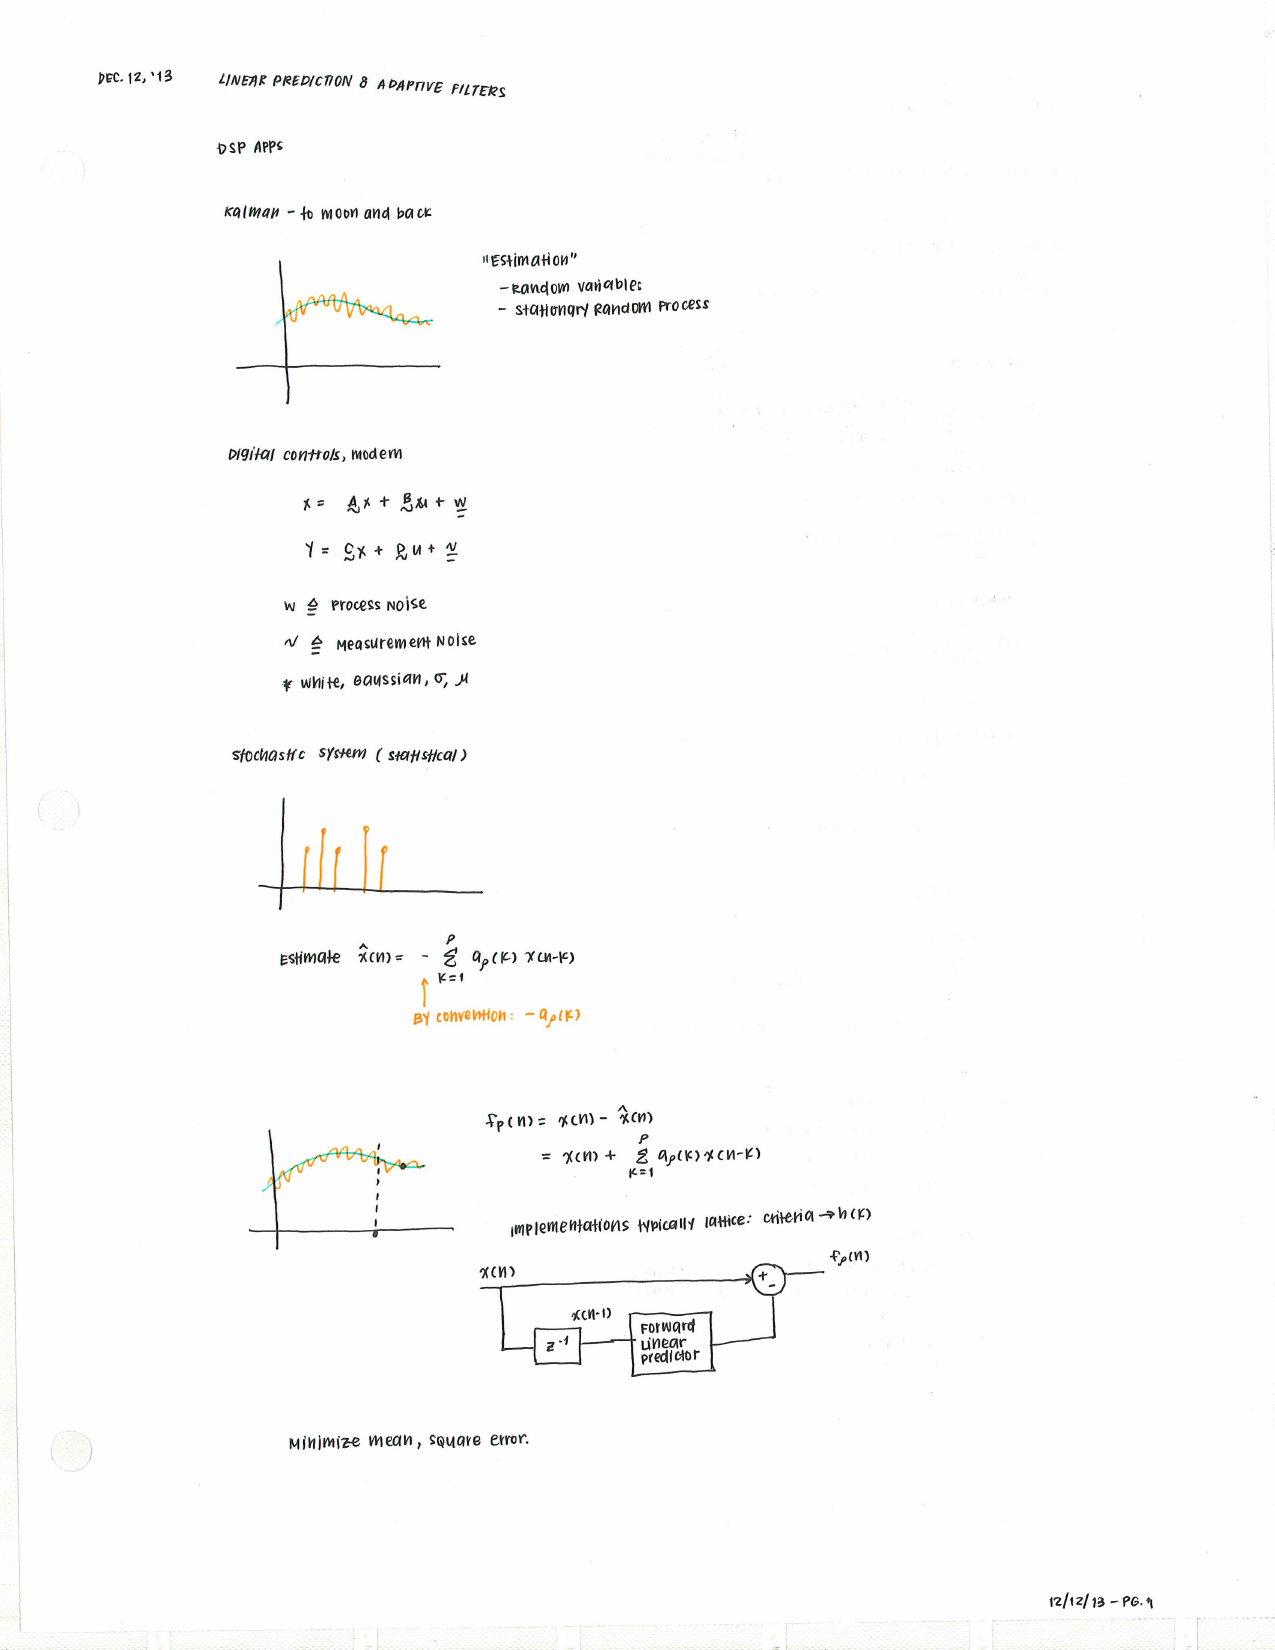 DEC. 12, '13
LINEAR PREDICTION & ADAPTIVE FILTERS
DSP APPS
Kalman - to moon and back
"Estimation"
- Random variables
- Stationary Random Process
Digital controls, modern
x = Ax + Bu + w
Y = Cx + Du + v
w ≜ Process Noise
v ≜ Measurement Noise
* White, Gaussian, σ, μ
Stochastic system (statistical)
Estimate x̂(n) = - Σ_{k=1}^{p} a_p(k) x(n-k)
By convention: - a_p(k)
f_p(n) = x(n) - x̂(n)
= x(n) + Σ_{k=1}^{p} a_p(k) x(n-k)
Implementations typically lattice: criteria → h(k)
f_p(n)
x(n)
+
-
x(n-1)
z^-1
Forward
Linear
Predictor
Minimize mean, square error.
12/12/13 - PG. 1